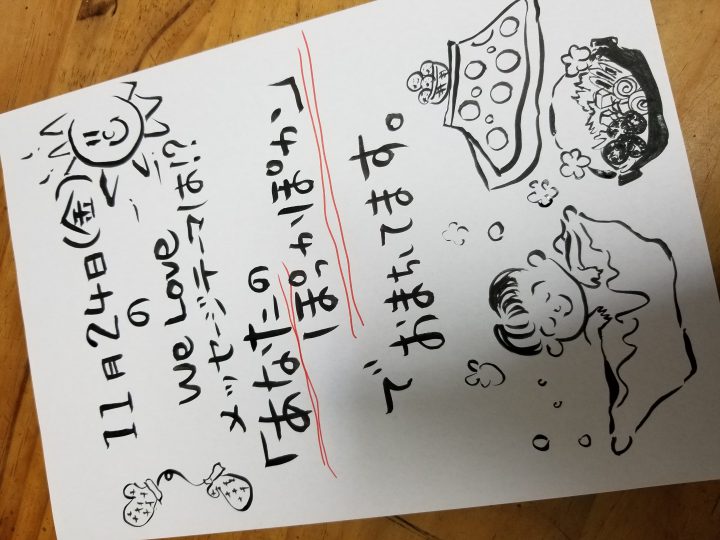 11月24日(金)
の
we Love
メッセージテーマは!?
「あなたの
ぽっかぽか」
で
おまちしてます。